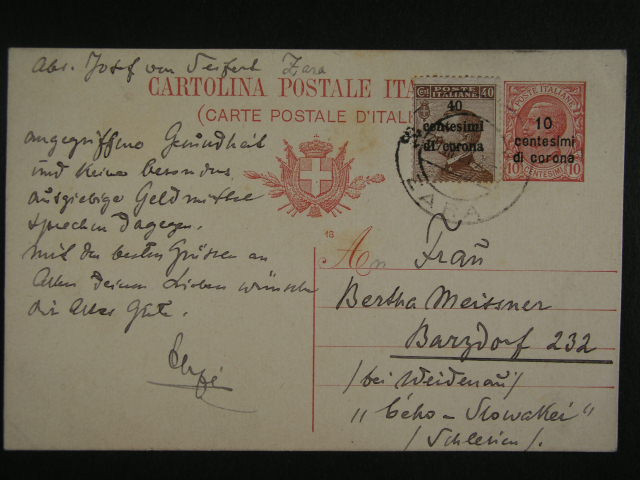 Abs. Josef von Seifert Zara
CARTOLINA POSTALE ITA
(CARTE POSTALE D'ITALI
POSTE ITALIANE
Cent 40
40
centesimi
di corona
POSTE ITALIANE
10
centesimi
di corona
10 CENTESIMI 10
ZARA
angegriffene Gesundheit
und keine besonders
ausgiebige Geldmittel
sprechen dagegen.
Mit den besten Grüssen an
Allen Deinen Lieben wünsche
dir Alles Gute.
18
An Frau
Bertha Meissner
Barzdorf 232
/bei Weidenau/
"Čeho-Slowakei"
/Schlesien/.